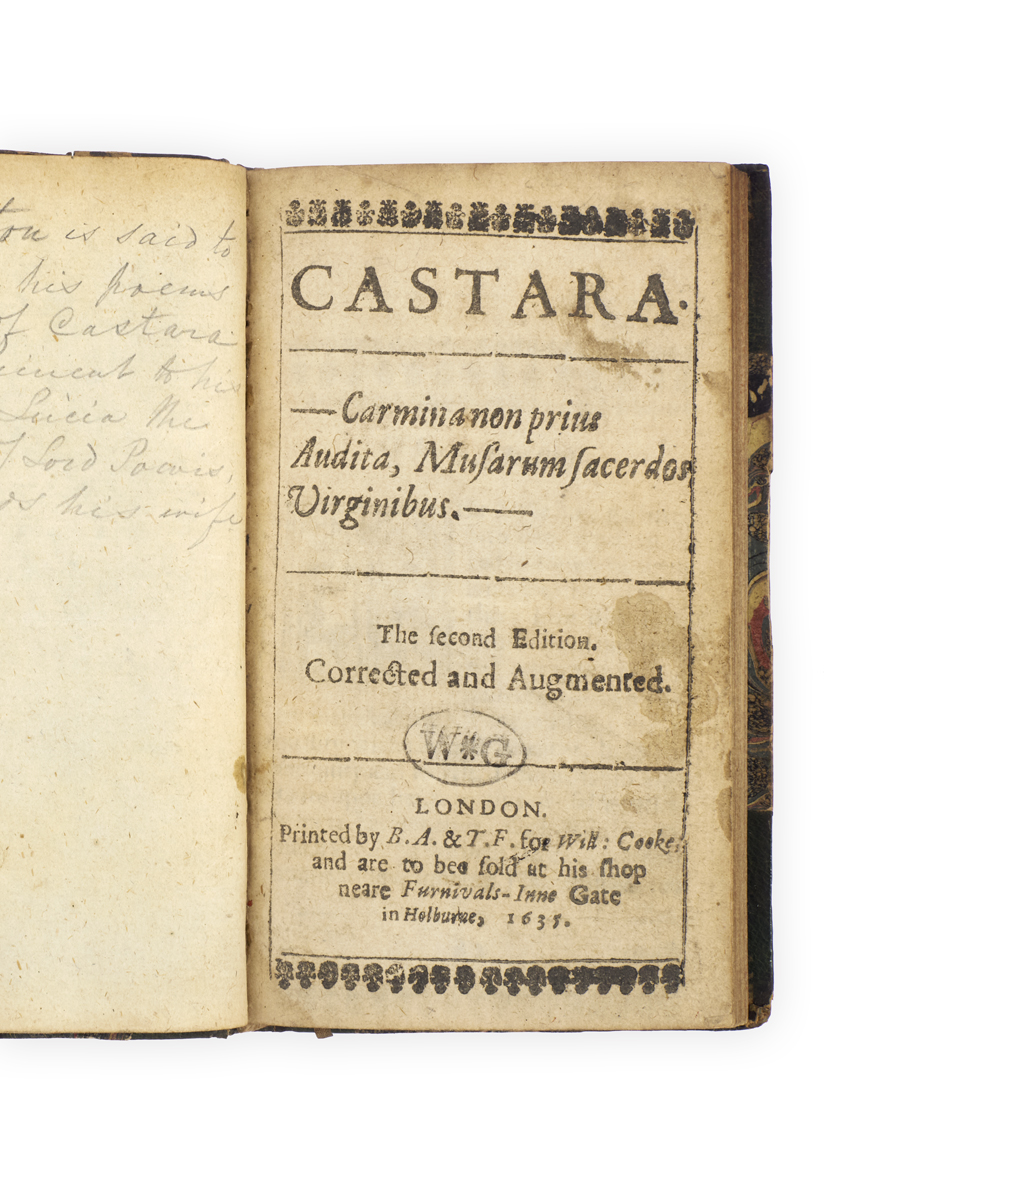 on is said to
his poems
of Castara
to his
Lucia the
of Lord Powis
his wife
CASTARA.
—Carmina non prius
Audita, Muſarum ſacerdos
Virginibus.—
The ſecond Edition.
Corrected and Augmented.
W*G
LONDON.
Printed by B. A. & T. F. for Will: Cooke,
and are to bee ſold at his ſhop
neare Furnivals-Inne Gate
in Holburne, 1635.